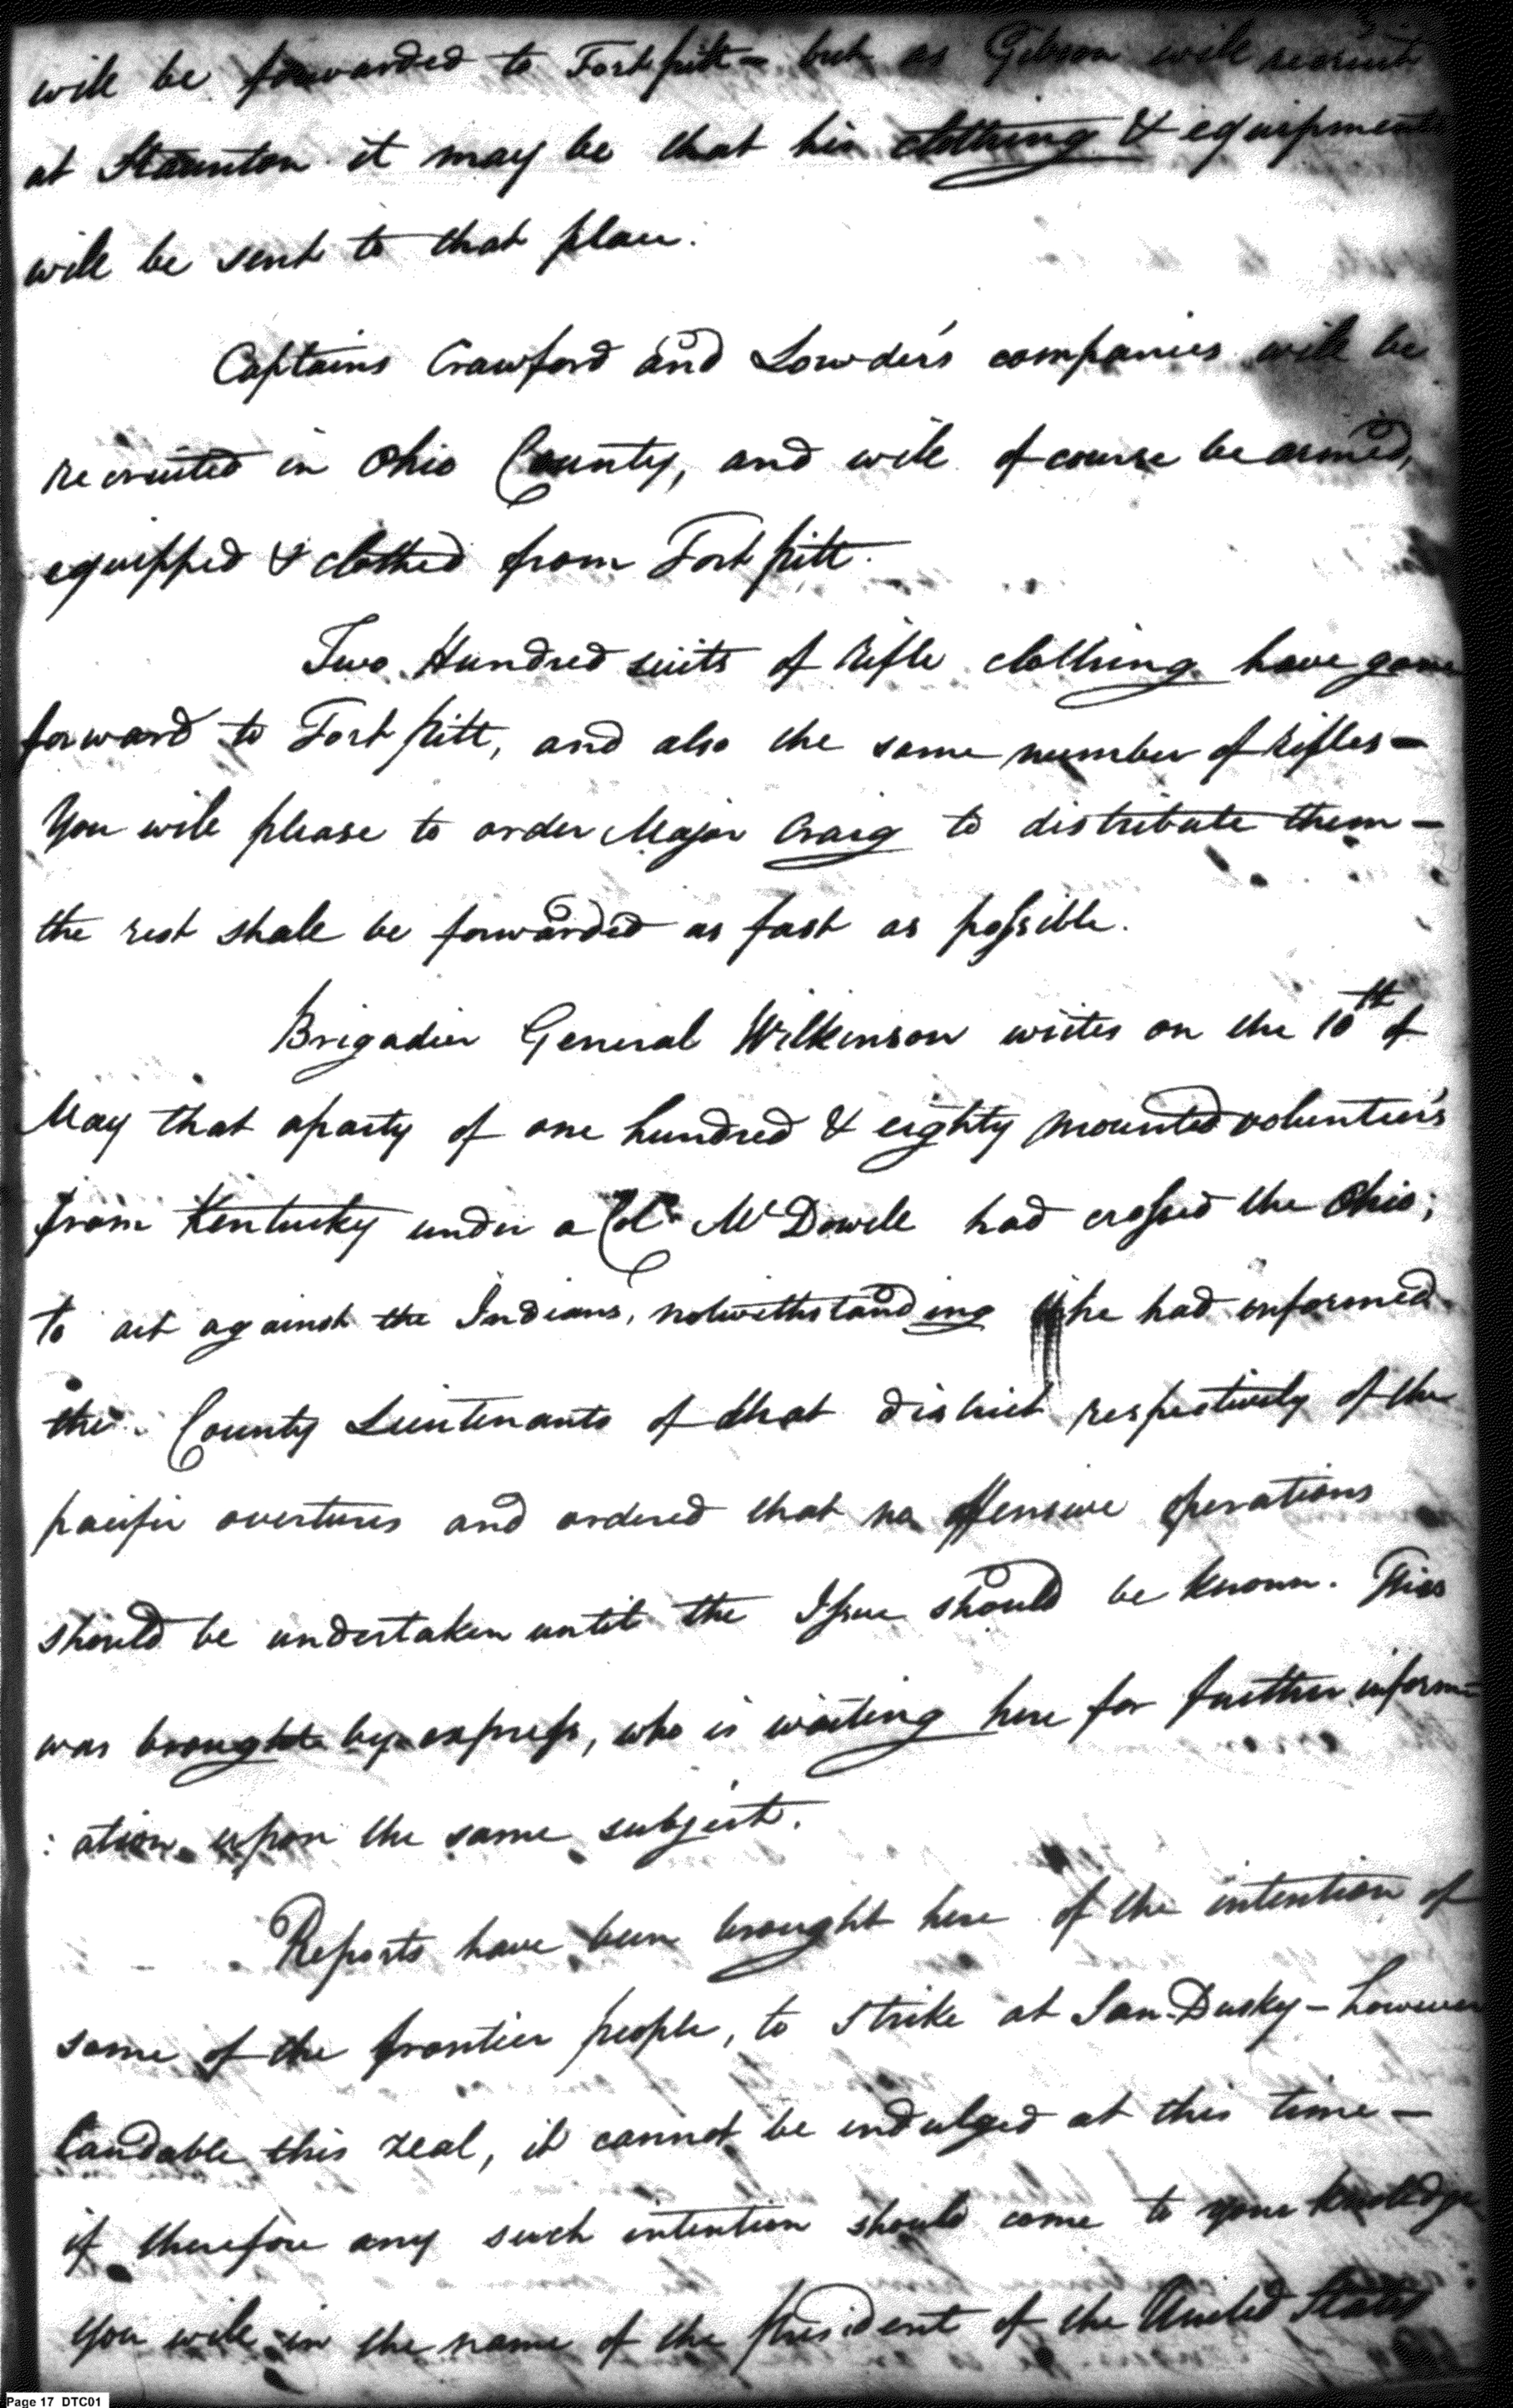 will be forwarded to Fort pitt – but as Gibson will recruit
at Staunton it may be that his clothing & equipments
will be sent to that place.
Captains Crawford and Lowder's companies will be
recruited in Ohio County, and will of course be armed,
equipped & clothed from Fort pitt.
Two Hundred suits of rifle clothing have gone
forward to Fort pitt, and also the same number of rifles –
You will please to order Major Craig to distribute them –
the rest shall be forwarded as fast as possible.
Brigadier General Wilkinson writes on the 10th of
May that a party of one hundred & eighty mounted volunteers
from Kentucky under a Col. McDowell had crossed the Ohio;
to act against the Indians, notwithstanding he had informed
the County Lieutenants of that district respectively of the
pacific overtures and ordered that no offensive operations
should be undertaken until the Issue should be known. This
was brought by express, who is waiting here for further inform
:ation upon the same subject.
Reports have been brought here of the intention of
some of the frontier people, to strike at San-Dusky – however
laudable this zeal, it cannot be indulged at this time –
if therefore any such intention should come to your knowledge
you will in the name of the President of the United States
Page 17 DTC01